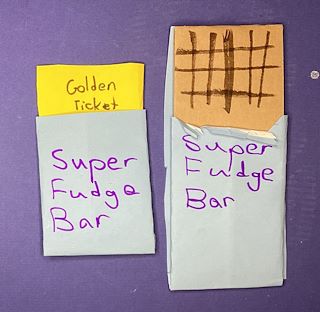 Golden
Ticket
Super
Fudge
Bar
Super
Fudge
Bar